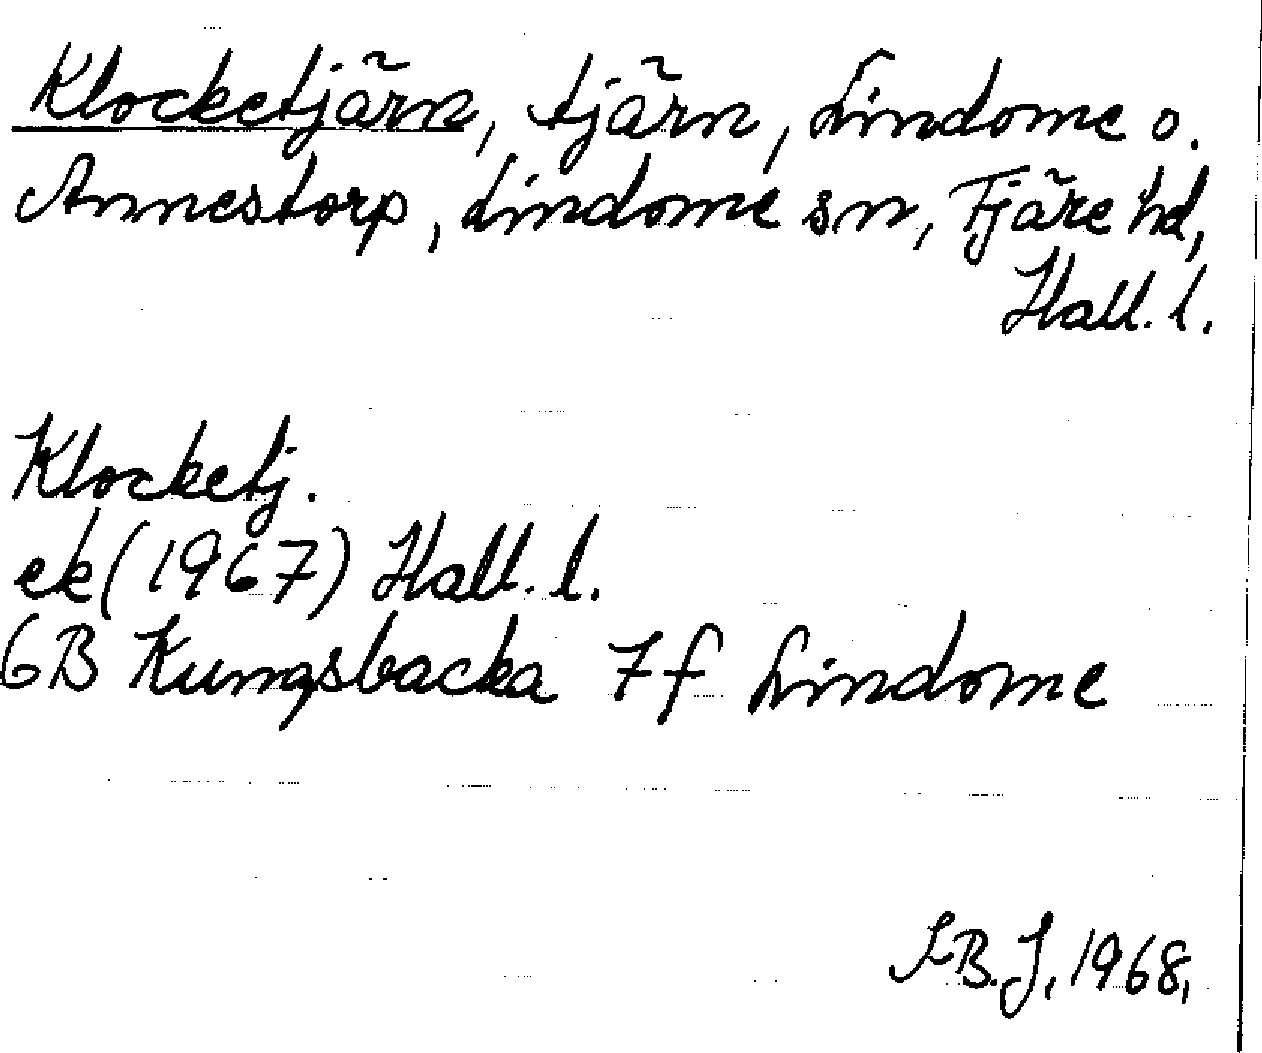 Klocketjärn, tjärn, Lindome o.
Annestorp, Lindome sn, Fjäre hd,
Hall. l.
Klocketj.
ek (1967) Hall. l.
6B Kungsbacka 7f Lindome
I.B.J, 1968,